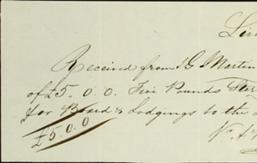 Received from J G Martin
of £5.0.0 Five Pounds Ster
for Board & Lodgings to the
£5.0.0